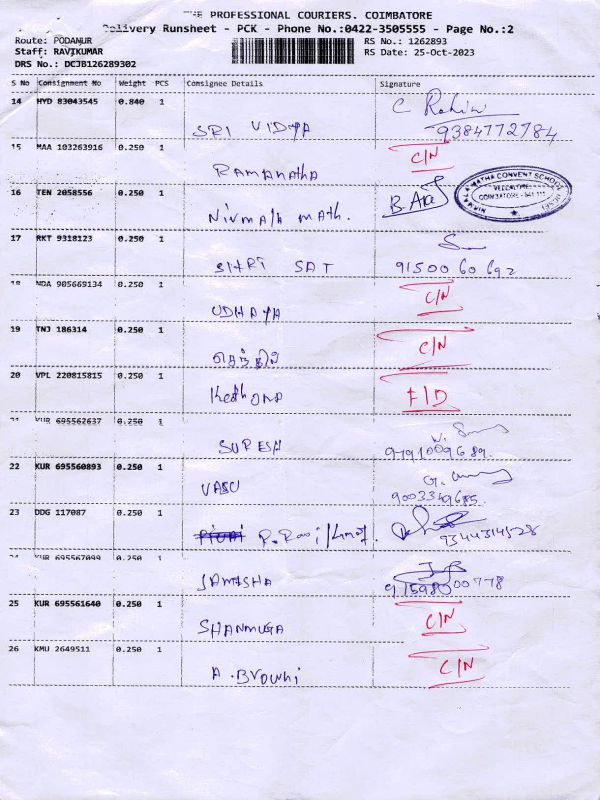 THE PROFESSIONAL COURIERS. COIMBATORE
Delivery Runsheet - PCK - Phone No.:0422-3505555 - Page No.:2
Route: PODANUR
RS No.: 1262893
Staff: RAVIKUMAR
RS Date: 25-Oct-2023
DRS No.: DCJB126289302
S No Consignment No Weight PCS Consignee Details Signature
14 HYD 83043545 0.840 1
SRI VIDYA
9384772784
15 MAA 103263916 0.250 1 C/N
RAMANATHA
16 TEN 2058556 0.250 1
NIRMALA MATHA CONVENT SCHOOL
VELLALORE
COIMBATORE - 641 111
Nirmala Math.
17 RKT 9318123 0.250 1
SHRI SAT 91500 60692
18 NDA 905669134 0.250 1 C/N
UDHAYA
19 TNJ 186314 0.250 1 C/N
செந்தில்
20 VPL 220815815 0.250 1 F/D
21 KUR 695562637 0.250 1
SURESH
22 KUR 695560893 0.250 1
VASU 9003349685.
23 DDG 117087 0.250 1
9344314528
24 KUR 695567099 0.250 1
25 KUR 695561640 0.250 1 C/N
SHANMUGA
26 KMU 2649511 0.250 1 C/N